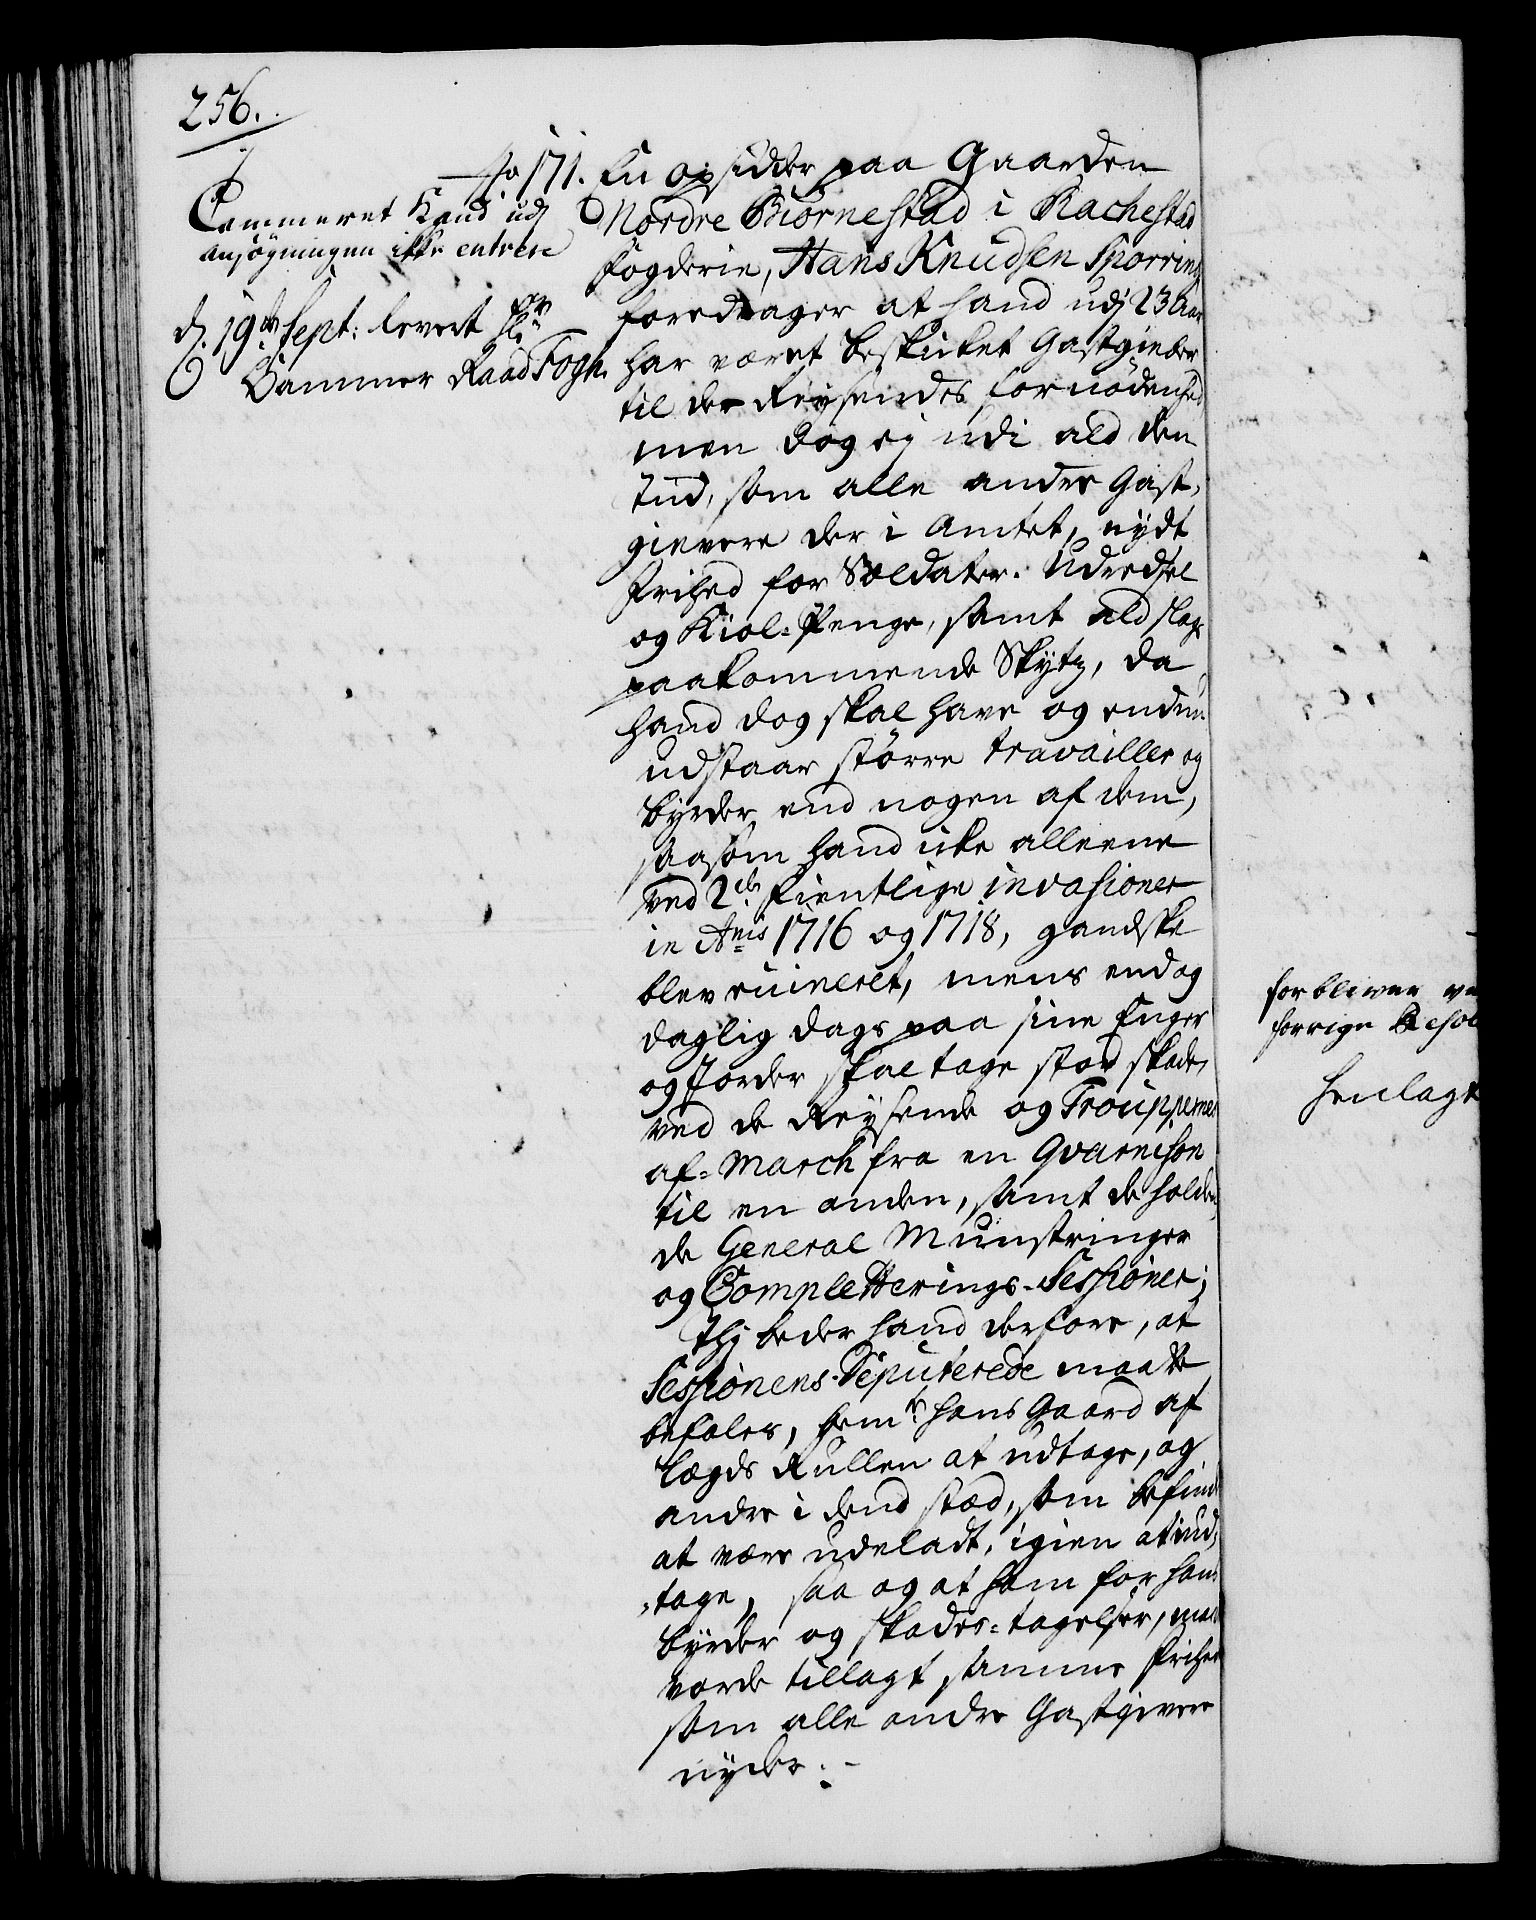 256.
No 171. En Opsidder paa Gaarden
Cammeret Kand udj
ansögningen ikke entrere
d. 19de Sept: levert
Cammer Raad Fogh.
Nordre Biörnestad i Rachestad
fogderie, Hans Knudsen Sporrind
foredrager at hand udj 23 Aar
har været beskicket Gastgieber
til de Reysendes fornödenhed
men dog ej udi ald den
tiid, som alle andre Gast-
gievere der i Amtet, nydt
frihed for Soldater-Udredsel
og Kiol-Penge, samt ald slags
paakommende Skytz, da
hand dog skal have og endnu
udstaar större travailler og
byrder end nogen af dem,
saasom hand icke alleene
ved 2de fientlige invasioner
in Anis 1716 og 1718, gandske
blev ruineret, mens endog
daglig dags paa sine Enger
og Jorder skal tage stor skade,
ved de Reysende og Trouppernes
af-March fra en Qvarnison
til en anden, samt de holden-
de General Munstringer
og Completterings-Sessioner;
Thj beder hand derfore, at
Sessionens Deputerede maatte
befales, hem hans Gaard af
Lægds Rullen at udtage, og
andre i dend stæd, som befindes
at være udeladt, igien at ind-
-tage, saa og at ham for hans
byrder og skades-tagelser, maa
vorde tillagt samme frihed
som alle andre Gastgivere
nyder.-
forbliver ve
forrige Resol
henlagt